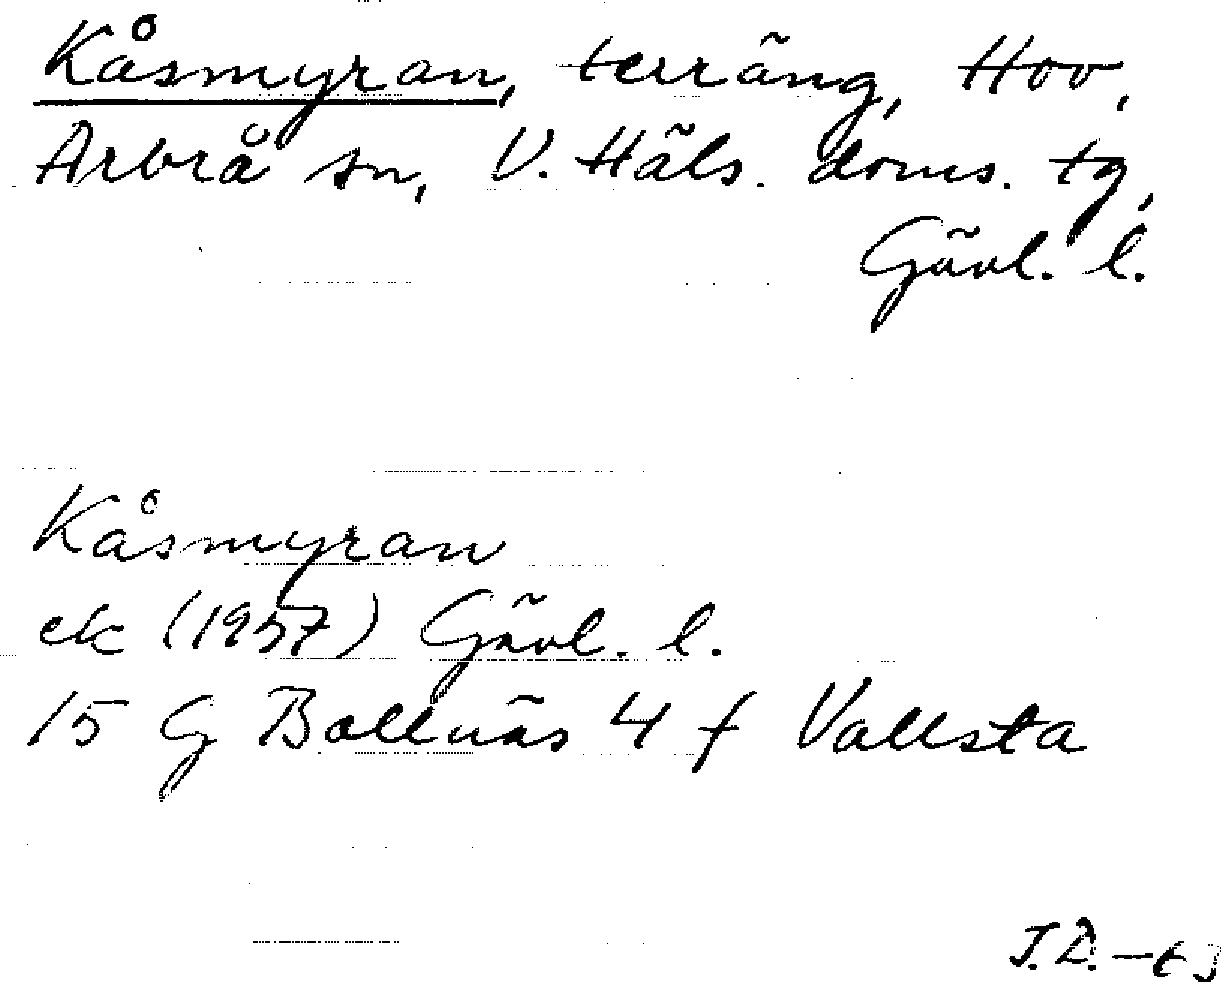 Kåsmyran, terräng, Hov,
Arbrå sn, V. Häls. doms. tg,
Gävl. l.
Kåsmyran
ek (1957) Gävl. l.
15 G Bollnäs 4 f Vallsta
J.D.